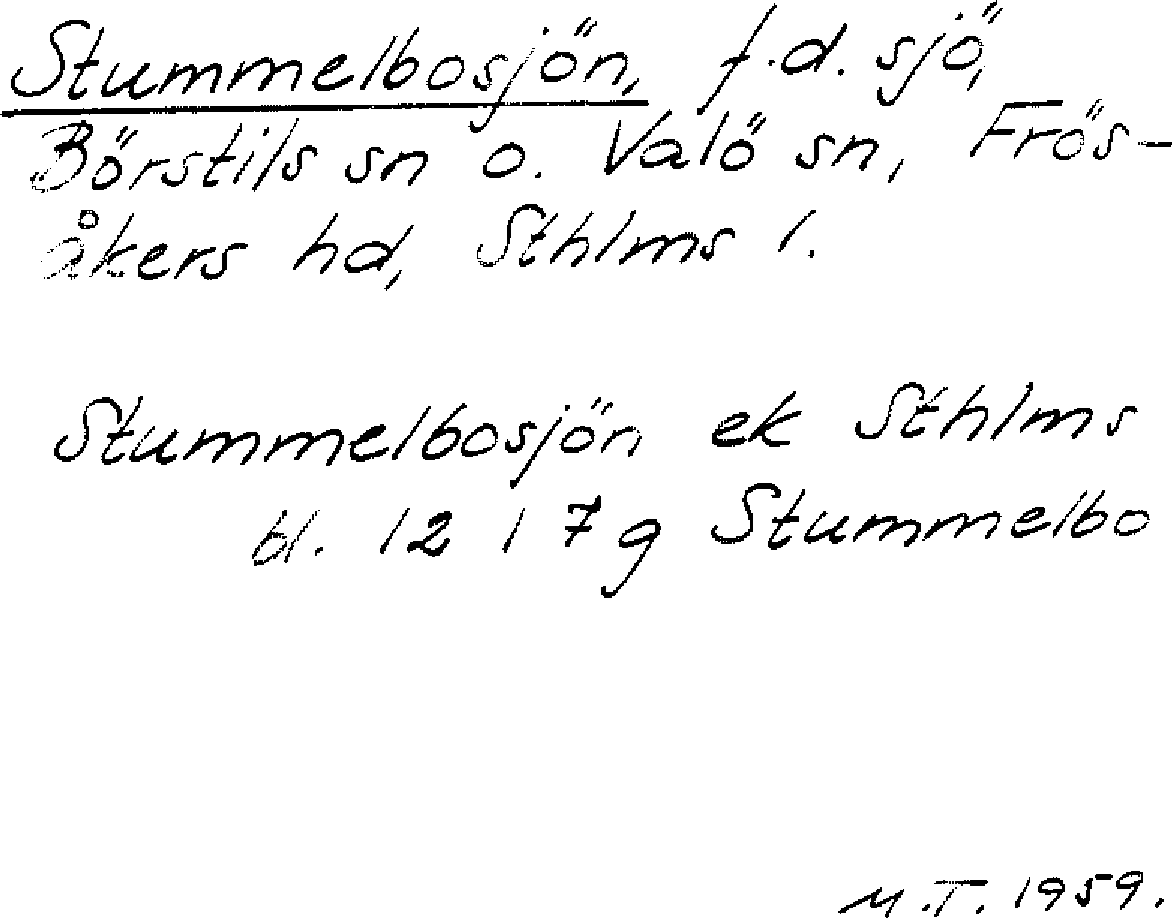 Stummelbosjön, f.d. sjö,
Börstils sn o. Valö sn, Frös-
åkers hd, Sthlms l.
Stummelbosjön ek Sthlms
bl. 12 I 7g Stummelbo
M.T. 1959.